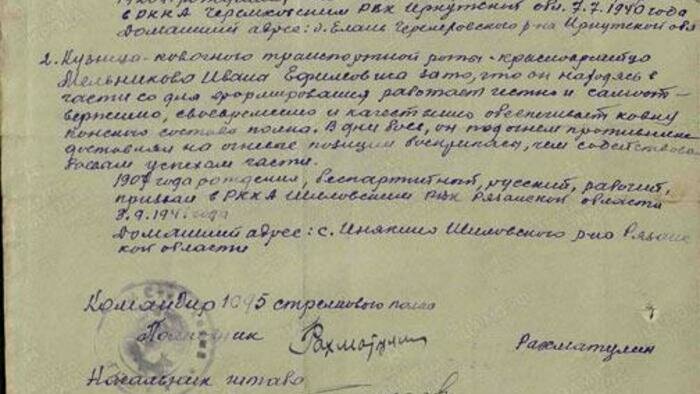 в РККА Черемховским РВК Иркутской обл. 7.7.1940 года
Домашний адрес: д. Елань Черемховского р-на Иркутской обл
2. Кузнеца-ковочного транспортной роты-красноармейца
Мельникова Ивана Ефимовича за то, что он находясь в
части со дня формирования работает честно и самоот-
верженно, своевременно и качественно обеспечивает ковку
конского состава полка. В дни боев, он под огнем противника
доставлял на огневые позиции боеприпасы, чем содействовал
боевым успехам части.
1907 года рождения, беспартийный, русский, рабочий,
призван в РККА Шиловским РВК Рязанской области
8.9.1941 года
Домашний адрес: с. Инякино Шиловского р-на Рязанс-
кой области
Командир 1095 стрелкового полка
Полковник Рахматулин Рахматулин
Начальник штаба